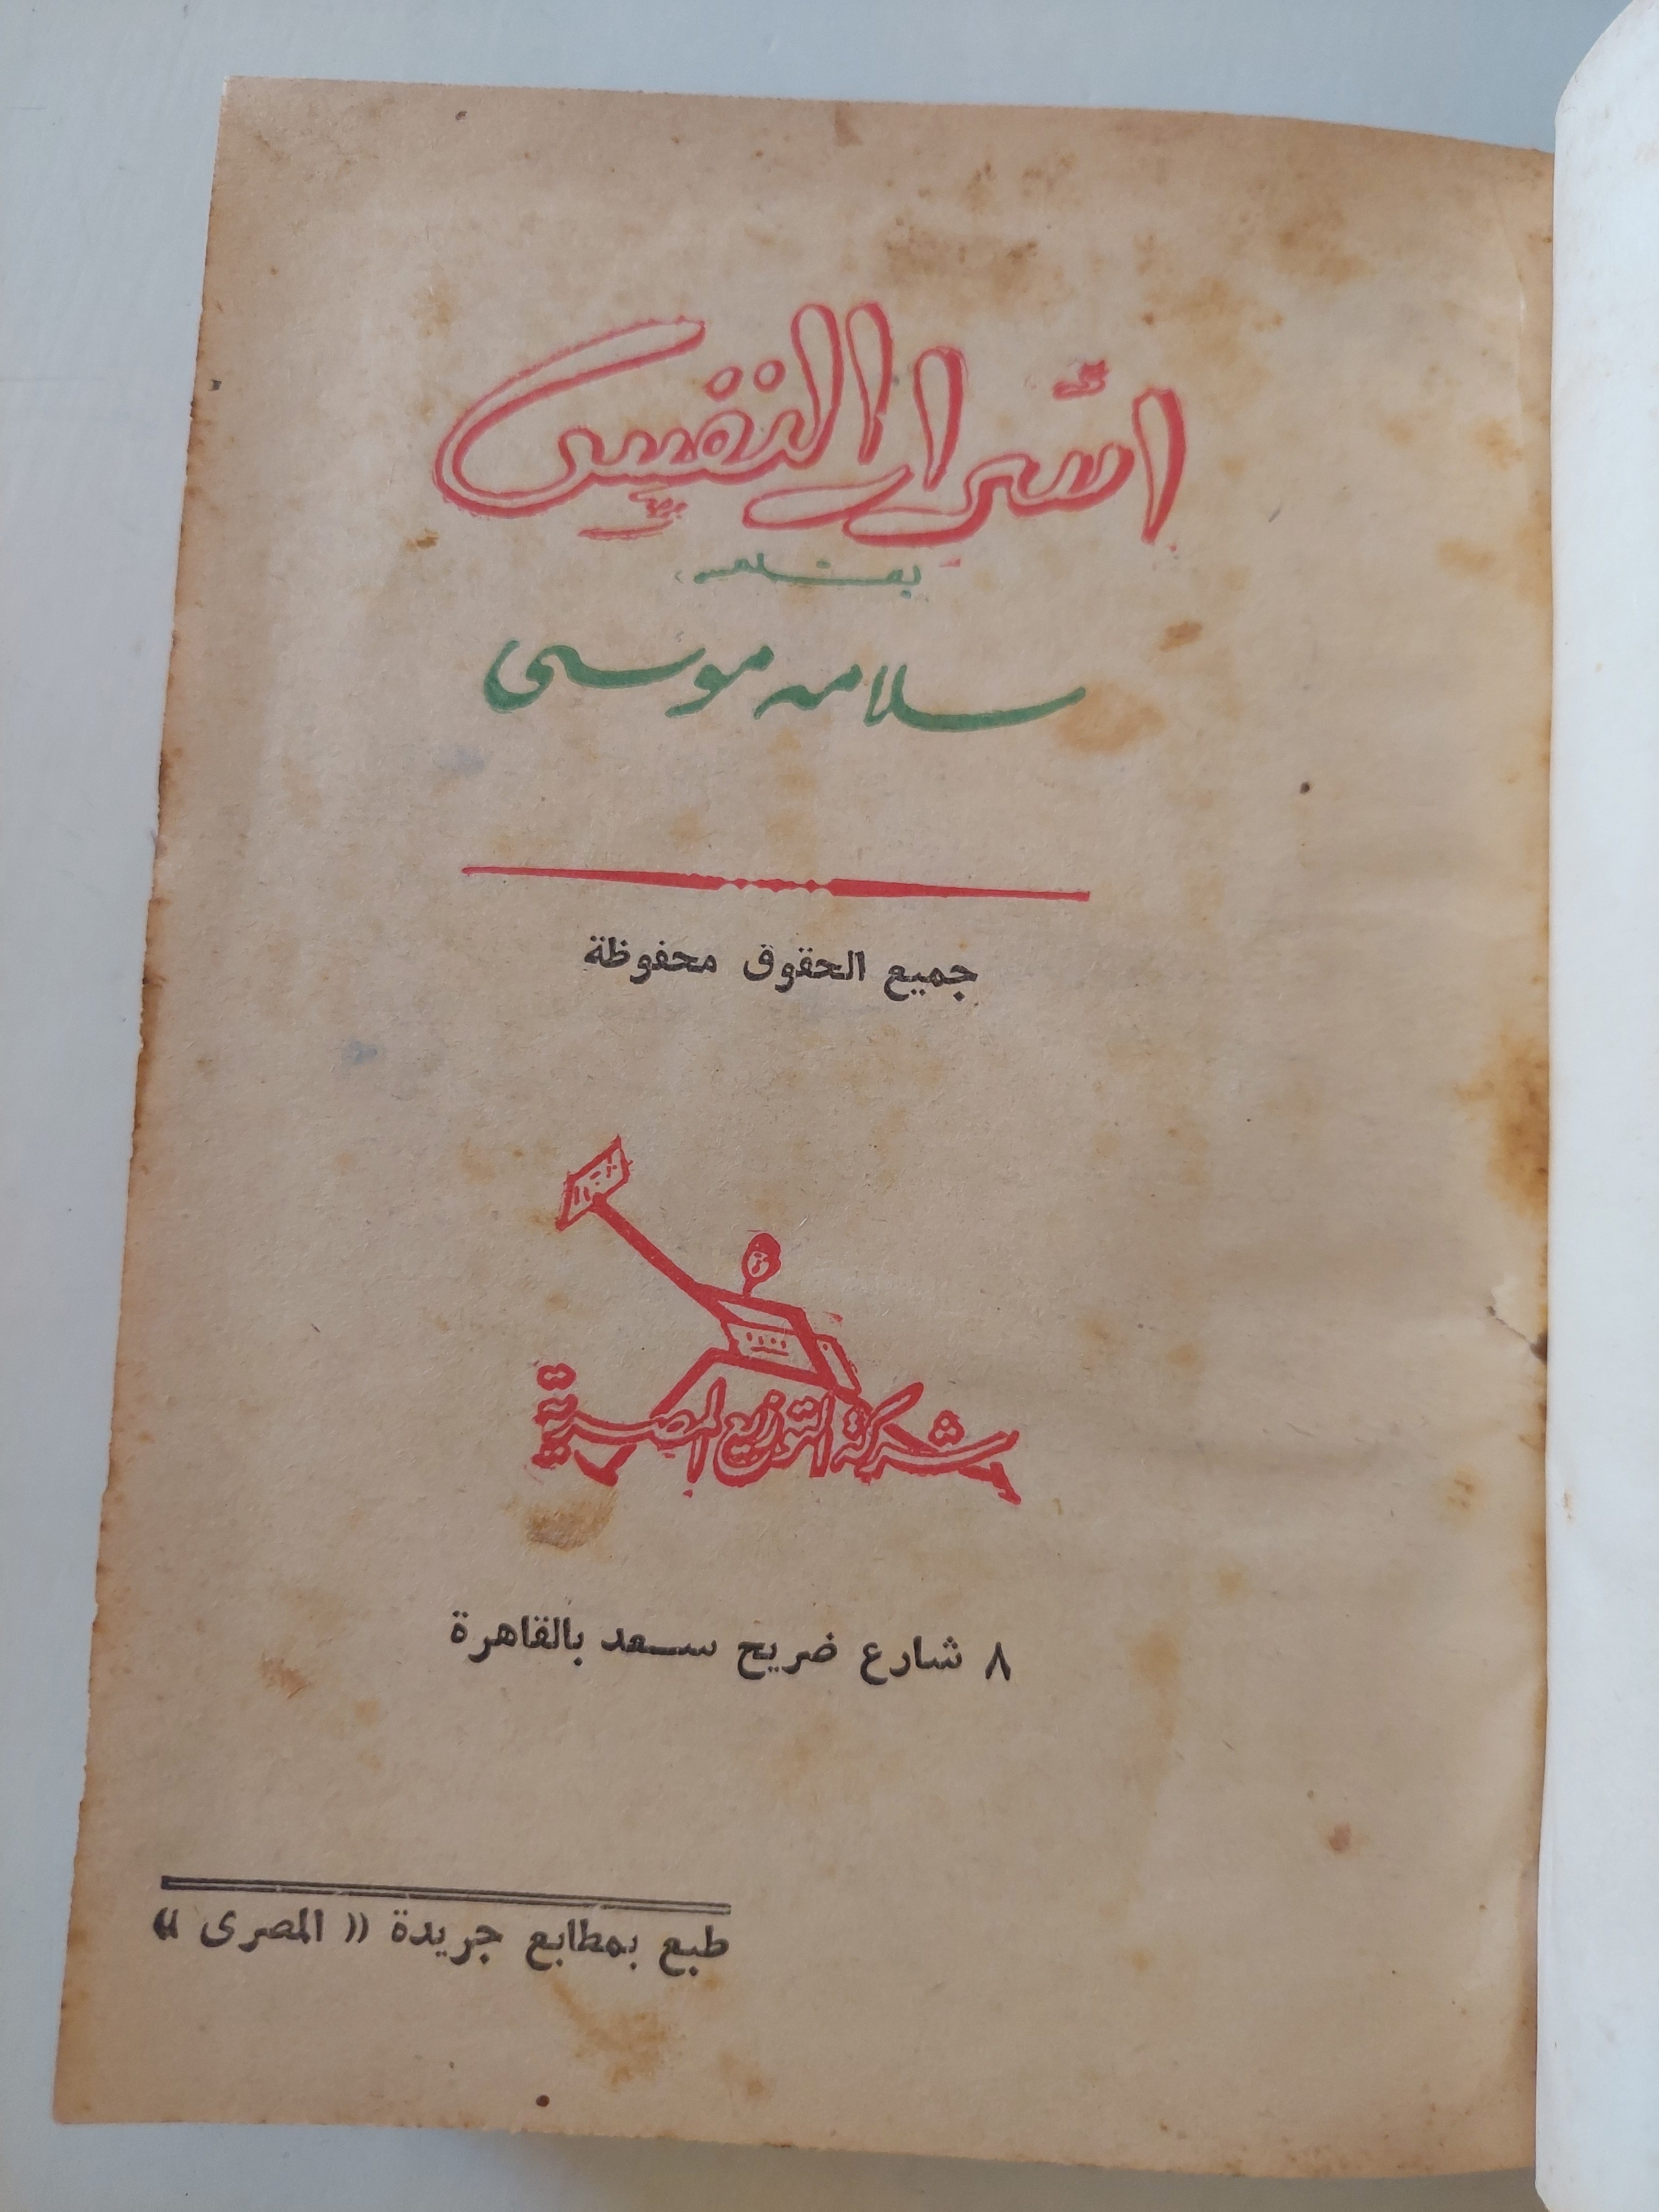 اسرار النفس
بقلم
سلامه موسى
جميع الحقوق محفوظة
شركة التوزيع المصرية
٨ شارع ضريح سعد بالقاهرة
طبع بمطابع جريدة « المصرى »